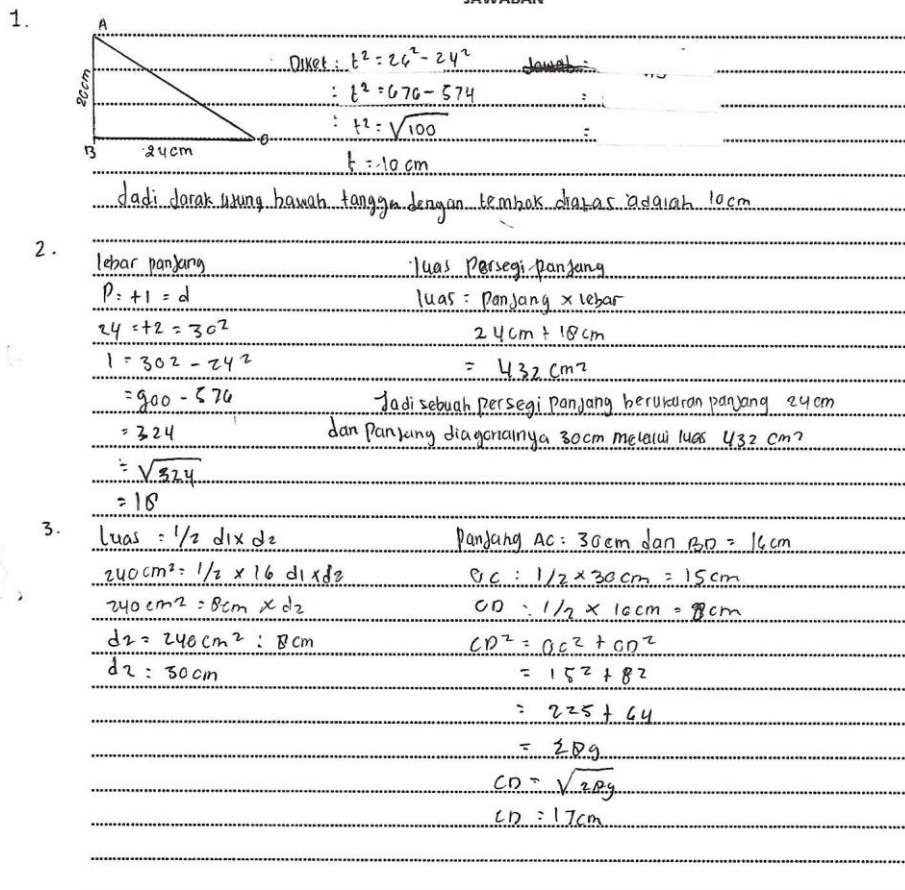 JAWABAN
1.
A
26cm
B
24cm
Diket : t² = 26² - 24²
: t² = 676 - 574
: t² = √100
t = 10 cm
Jadi Jarak ujung bawah tangga dengan tembok diatas adalah 10cm
2.
lebar panjang
P = + l = d
24 = +2 = 30²
l = 302 - 24²
= 900 - 576
= 324
= √324
= 18
luas Persegi panjang
luas = Panjang x lebar
24cm + 18cm
= 432 cm2
Jadi sebuah persegi panjang berukuran panjang 24cm
dan Panjang diagonalnya 30cm melalui luas 432 cm2
3.
Luas = 1/2 d1x d2
240cm² = 1/2 x 16 d1xd2
240cm2 = 8cm x d2
d2 = 240cm² : 8cm
d2 : 30cm
Panjang AC : 30cm dan BD = 16cm
OC : 1/2 x 30cm = 15cm
OD : 1/2 x 16cm = 8cm
CD² = OC² + OD²
= 15² + 82
= 225 + 64
= 289
CD = √289
CD = 17cm